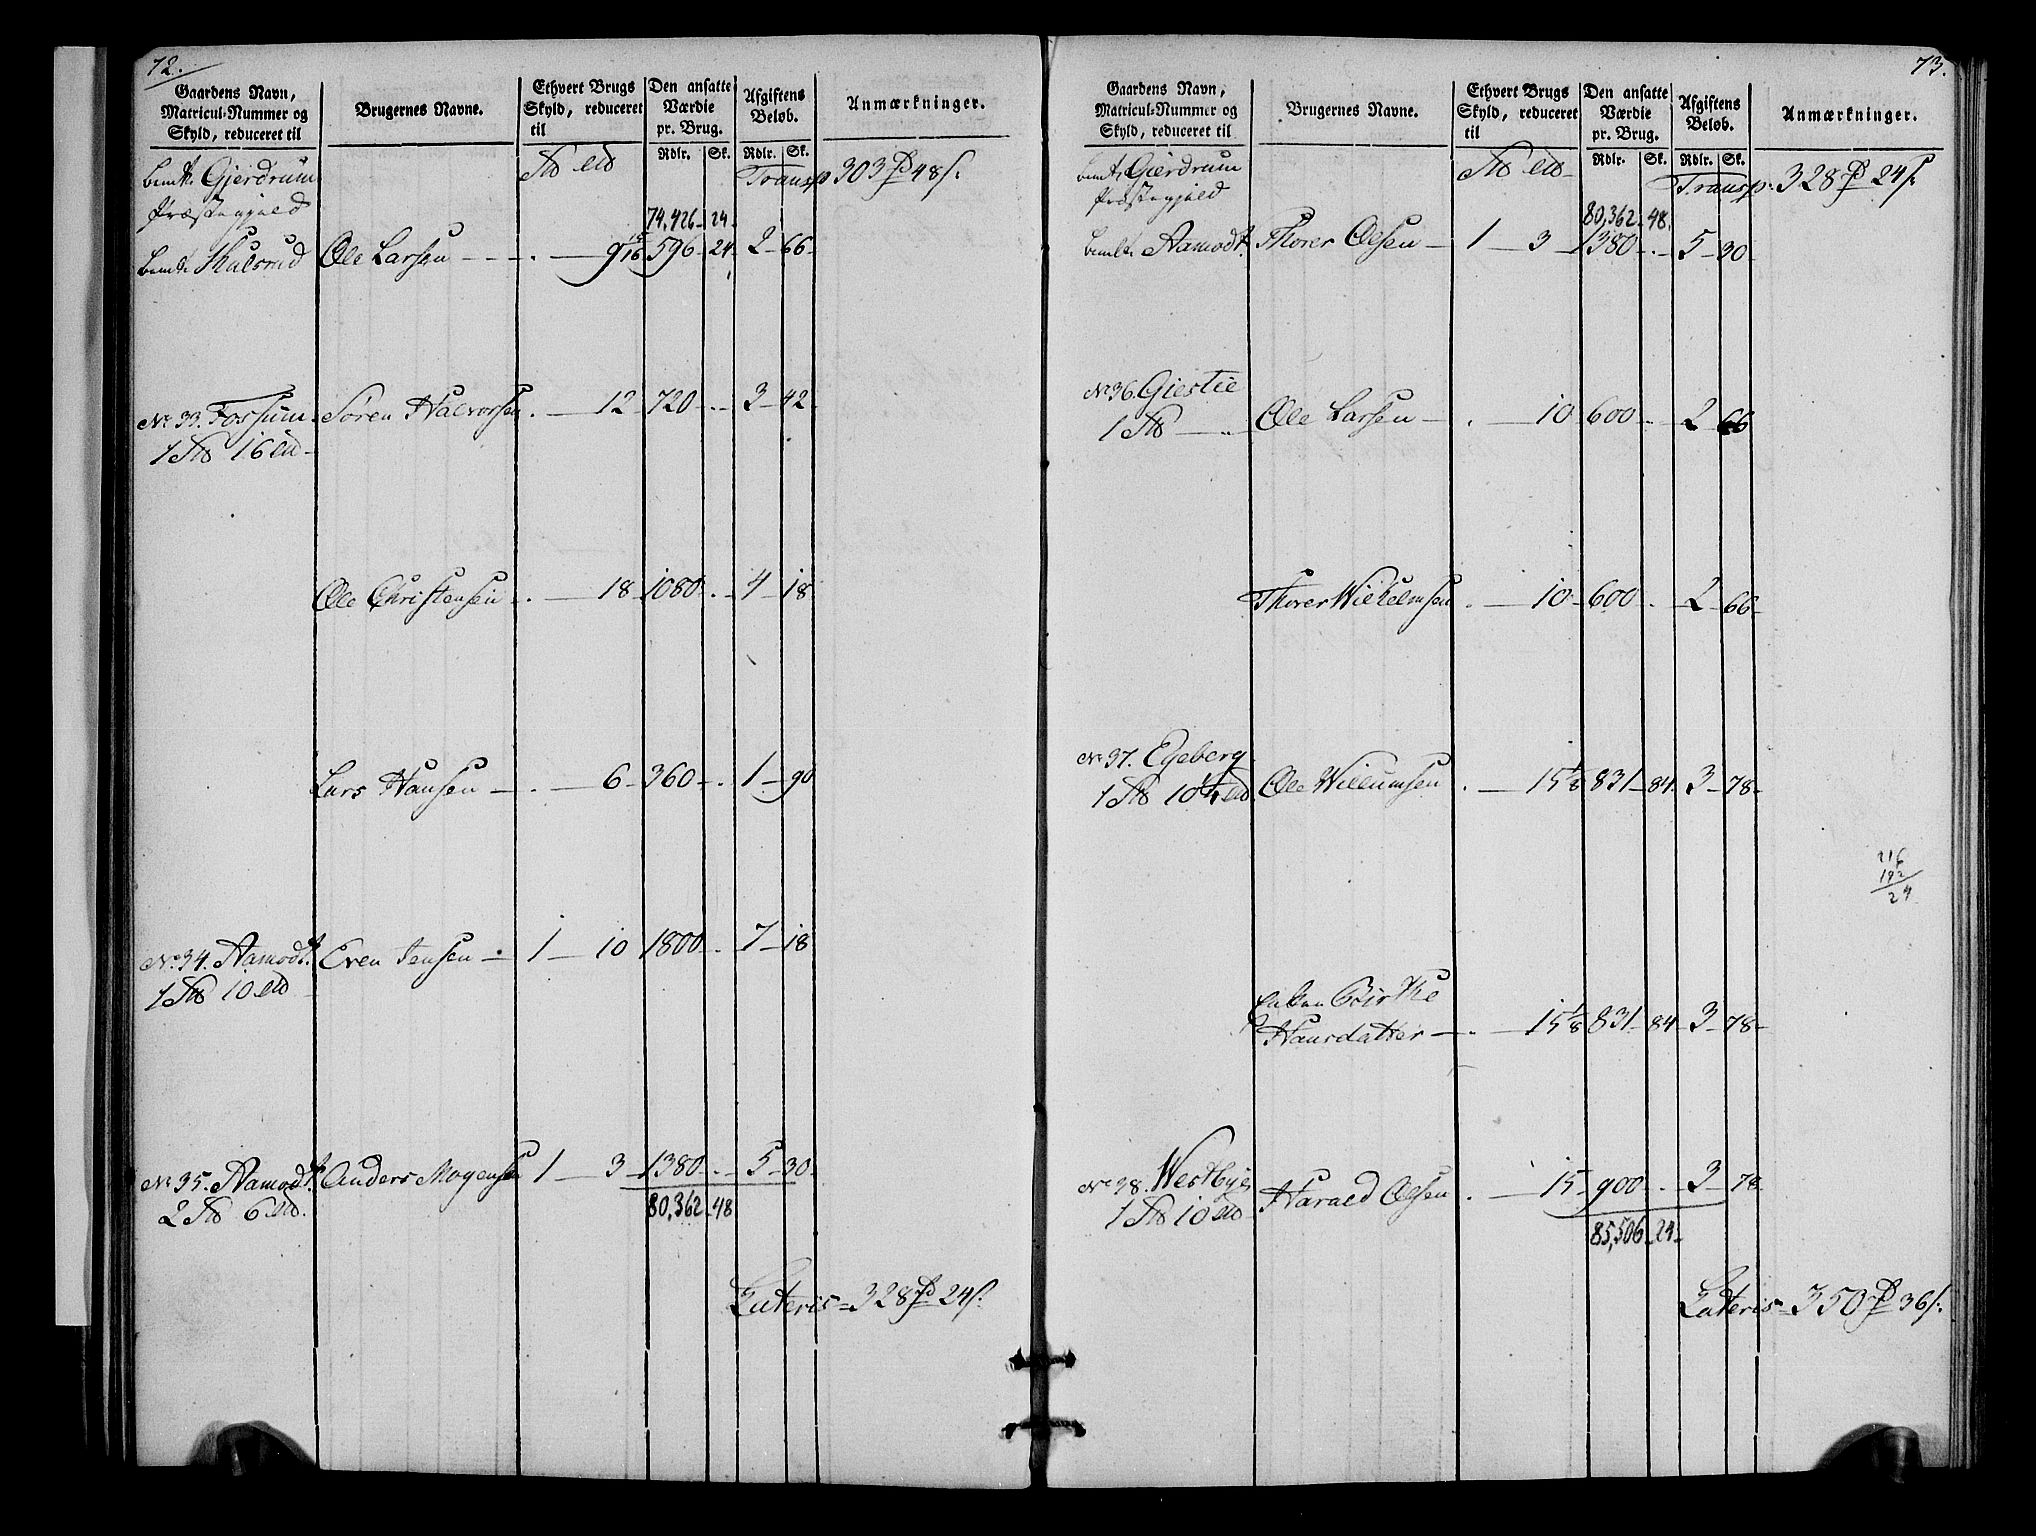 72.
Gaardens Navn,
Matricul-Nummer og
Skyld, reduceret til
Brugernes Navne.
Ethvert Brugs
Skyld, reduceret
til
Den ansatte
Værdie
pr. Brug.
Rdlr. Sk.
Afgiftens
Beløb.
Rdlr. Sk.
Anmærkninger.
bemte. Gjerdrum
Præstegjeld
Transp 303 48 s.
74,426 24
bemte. Skulsrud Ole Larsen 9 15/16 596 24 2 66
No 33. Fossum Sören Halvorsen 12 720 3 42
1 16
Ole Christensen 18 1080 4 18
Lars Hansen 6 360 1 90
No 34. Aamodt Even Jensen 1 10 1800 7 18
1 10
No 35. Aamodt Anders Mogensen 1 3 1380 5 30
2 6
80,362 48
Lateris 328 24 s.
73.
Gaardens Navn,
Matricul-Nummer og
Skyld, reduceret til
Brugernes Navne.
Ethvert Brugs
Skyld, reduceret
til
Den ansatte
Værdie
pr. Brug.
Rdlr. Sk.
Afgiftens
Beløb.
Rdlr. Sk.
Anmærkninger.
bemte. Gierdrum
Præstegjeld
Transp. 328 24 s.
80,362 48
bemte. Aamodt Thorer Olsen 1 3 1380 5 30
No 36. Giestie Ole Larsen 10 600 2 66
1
Thorer Wilhelmsen 10 600 2 66
No 37. Egeberg Ole Willumsen 15 1/8 831 84 3 78
1 10 1/4
216
192
24
Enken Birthe
Hansdatter 15 1/8 831 84 3 78
No 38. Westbye Harald Olsen 15 900 3 78
1 10
85,506 24
Lateris 350 36 s.